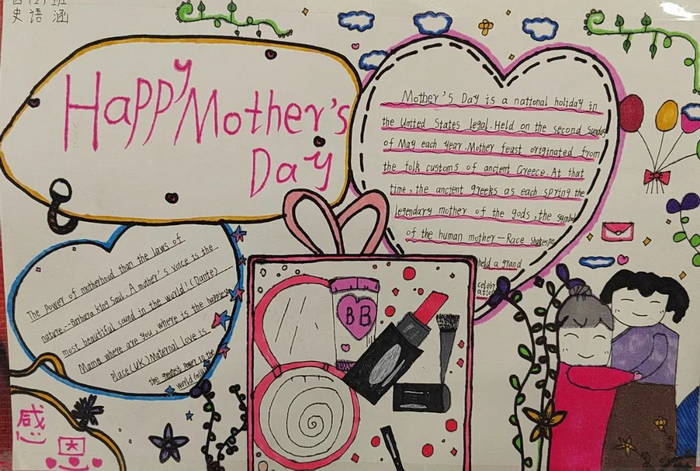 四(2)班
史语涵
Happy Mother's
Day
Mother's Day is a national holiday in
the United States legal.Held on the second Sunday
of May each year.Mother feast originated from
the folk customs of ancient Greece.At that
time,the ancient greeks as each spring the
legendary mother of the gods,the symbol
of the human mother—Race
held a grand
celebr
ation
The Power of motherhood than the laws of
nature.—Barbara King Saul.A mother's voice is the
most beautiful sound in the world!(Dante)
Mama where are you,where is the happiest
place(UK)Maternal love is
the greatest power in the
world
BB
感
恩